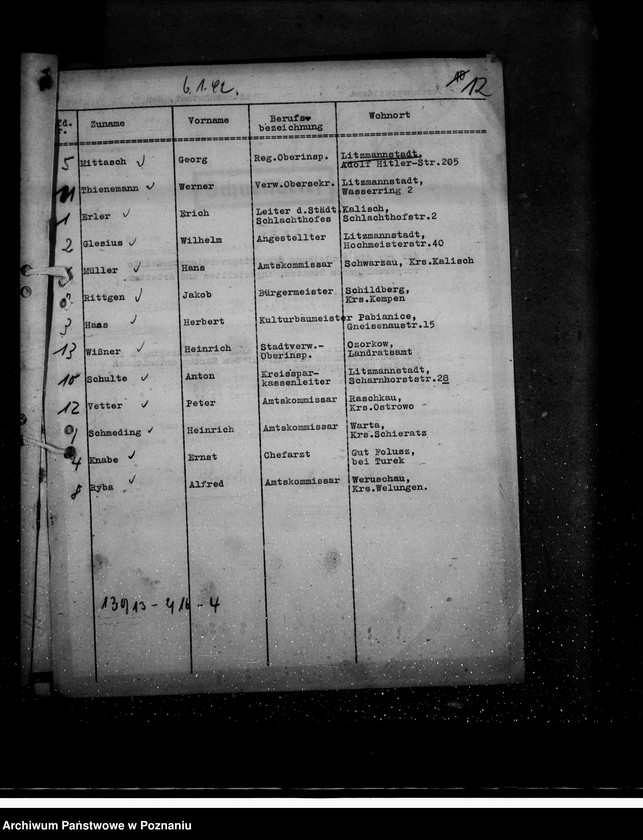 6.1.42.
12
Zuname Vorname Berufs- Wohnort
bezeichnung
5 Mittasch Georg Reg.Oberinsp. Litzmannstadt,
Adolf Hitler-Str.205
11 Thienemann Werner Verw.Obersekr. Litzmannstadt,
Wasserring 2
1 Erler Erich Leiter d.Städt. Kalisch,
Schlachthofes Schlachthofstr.2
2 Glesius Wilhelm Angestellter Litzmannstadt,
Hochmeisterstr.40
Müller Hans Amtskommissar Schwarzau, Krs.Kalisch
Rittgen Jakob Bürgermeister Schildberg,
Krs.Kempen
3 Haas Herbert Kulturbaumeister Pabianice,
Gneisenaustr.15
13 Wißner Heinrich Stadtverw.- Ozorkow,
Oberinsp. Landratsamt
10 Schulte Anton Kreisspar- Litzmannstadt,
kassenleiter Scharnhorststr.28
12 Vetter Peter Amtskommissar Raschkau,
Krs.Ostrowo
Schmeding Heinrich Amtskommissar Warta,
Krs.Schieratz
4 Knabe Ernst Chefarzt Gut Folusz,
bei Turek
8 Ryba Alfred Amtskommissar Weruschau,
Krs.Welungen.
Archiwum Państwowe w Poznaniu